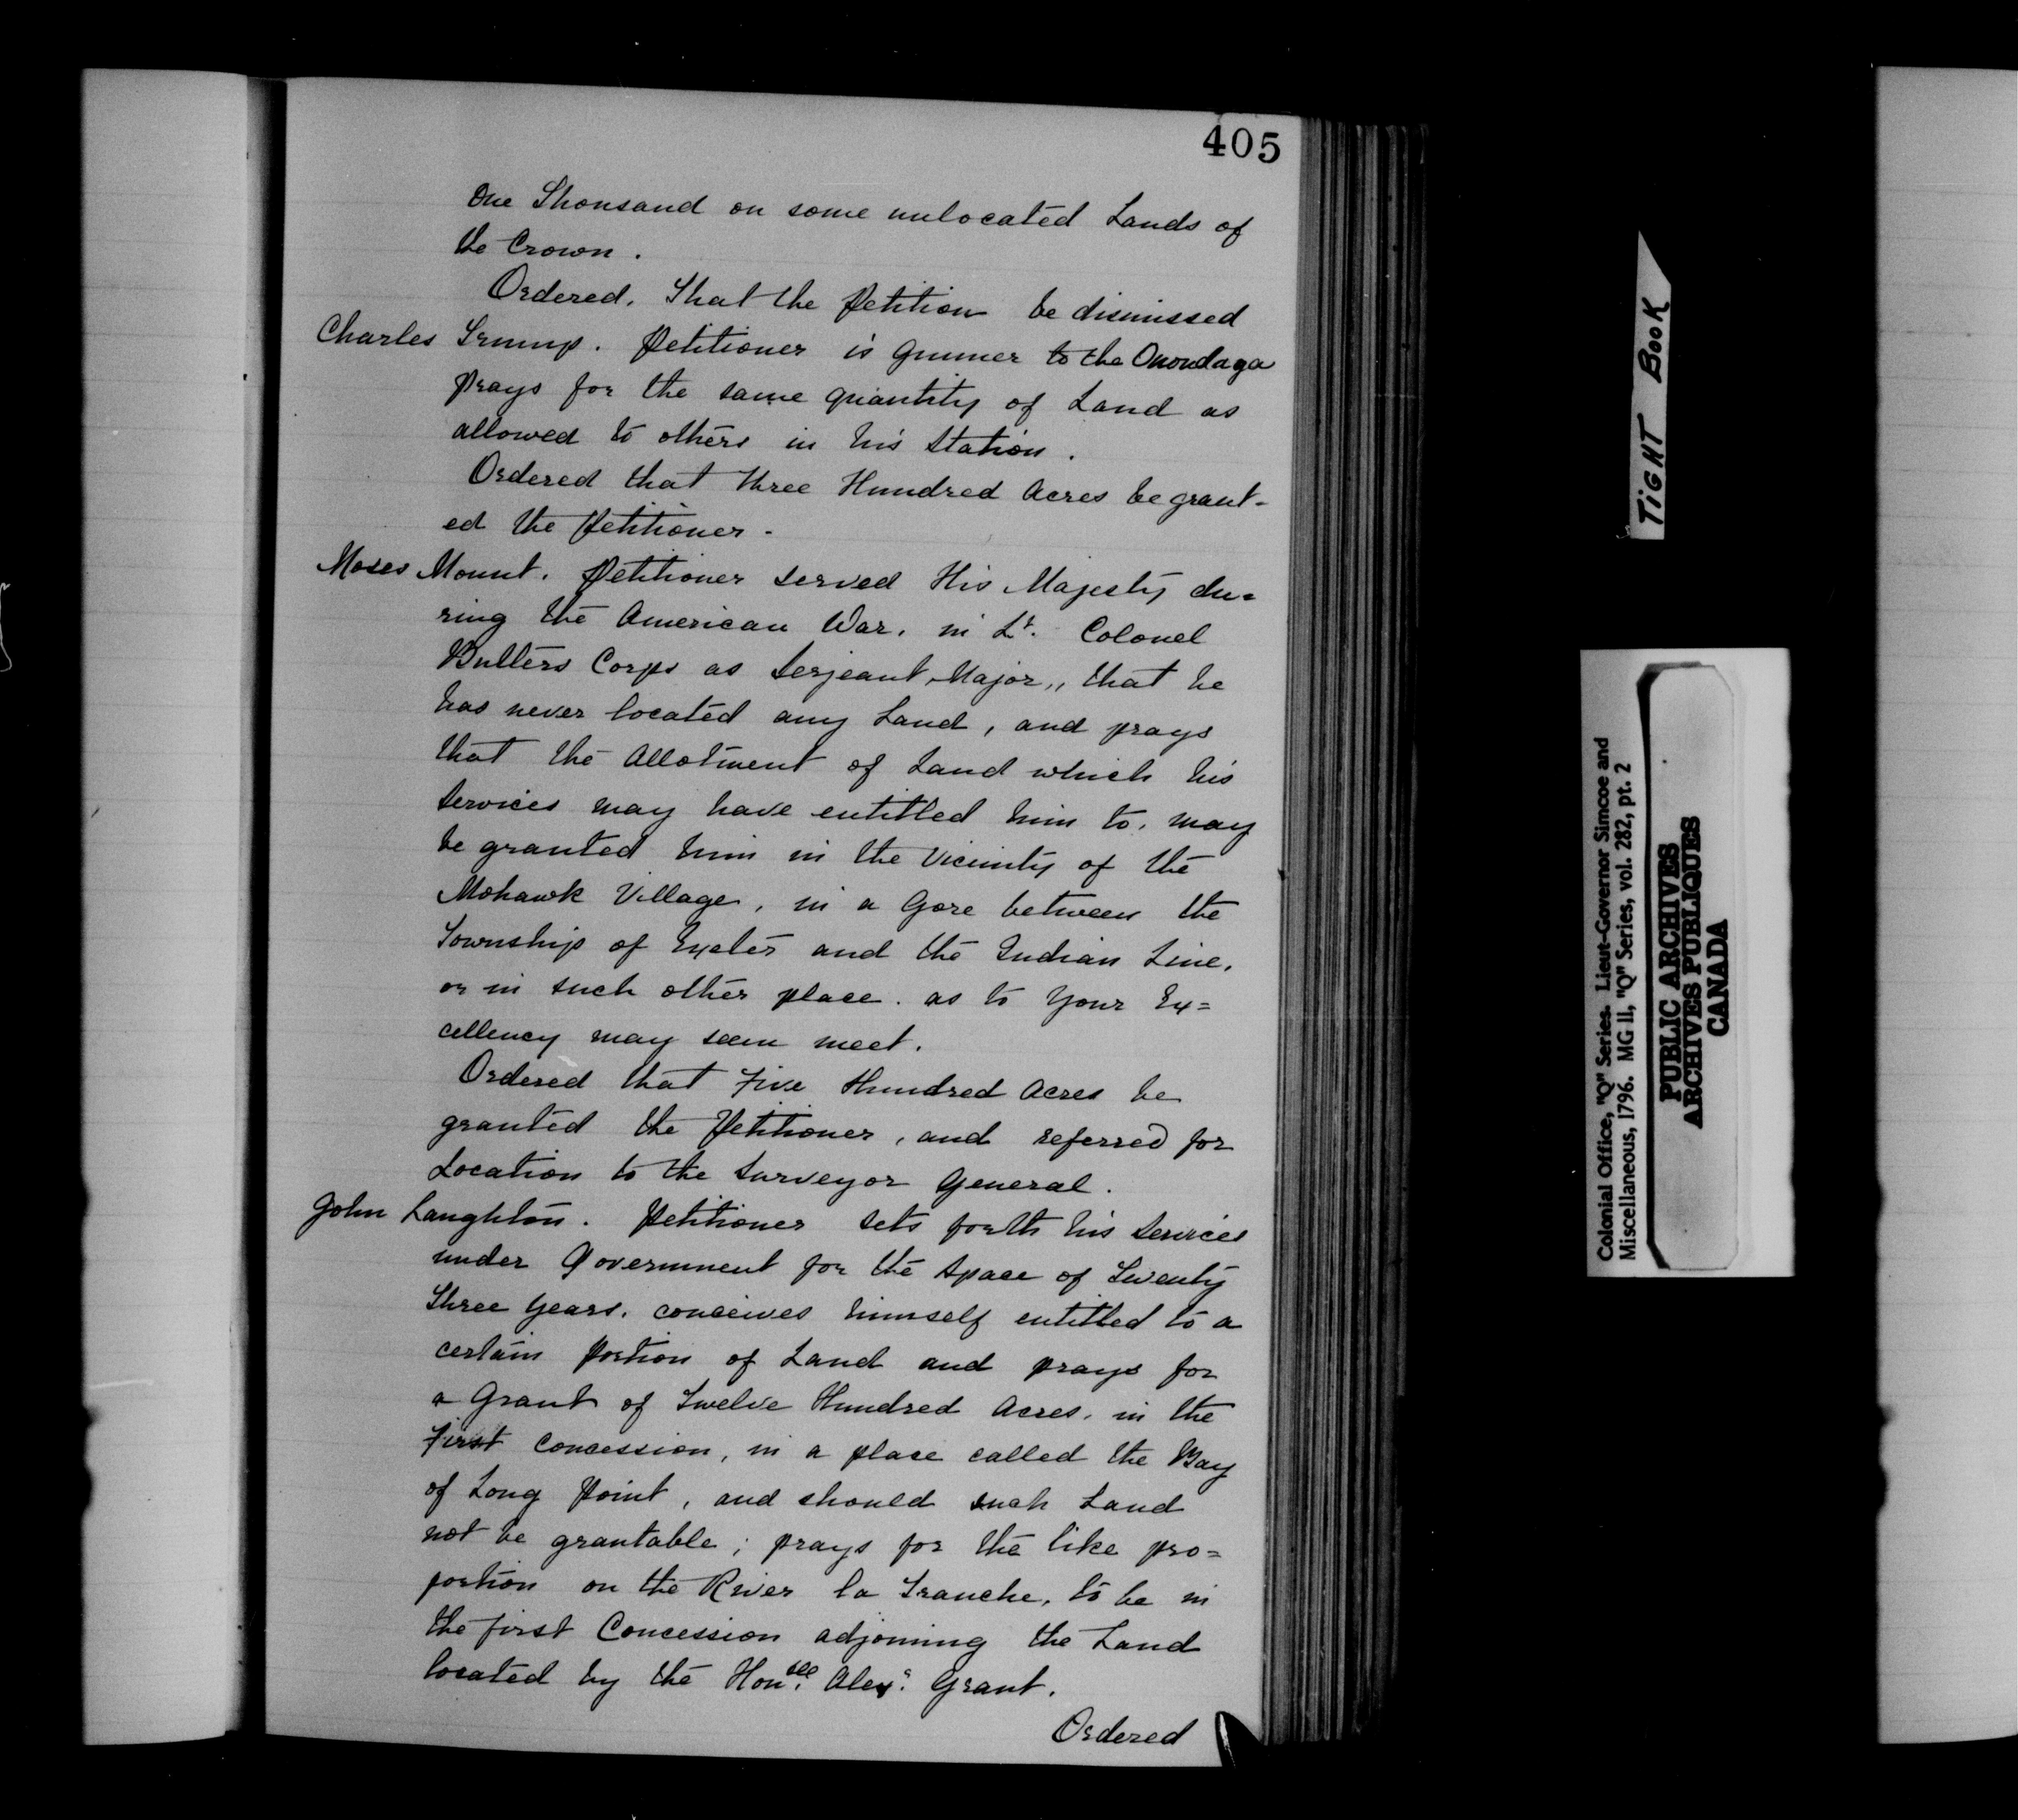 405
One Thousand on some unlocated Lands of
the Crown.
Ordered. That the Petition be dismissed
Charles Trump. Petitioner is Gunner to the Onondaga
prays for the same quantity of Land as
allowed to others in his Station.
Ordered that three Hundred Acres be grant-
ed the Petitioner -
Moses Mount. Petitioner served His Majesty du=
ring the American War, in Lt. Colonel
Butlers Corps as Serjeant Major,, that he
has never located any Land, and prays
that the Allotment of Land which his
Services may have entitled him to, may
be granted him in the Vicinity of the
Mohawk Village, in a Gore between the
Township of Exeter and the Indian Line,
or in such other place. as to Your Ex=
cellency may seem meet.
Ordered that Five Hundred Acres be
granted the Petitioner, and referred for
Location to the Surveyor General.
John Laughton. Petitioner sets forth his Services
under Government for the space of Twenty
Three Years, conceives himself entitled to a
certain portion of Land and prays for
a Grant of Twelve Hundred Acres, in the
First Concession, in a place called the Bay
of Long Point, and should such Land
not be grantable; prays for the like pro=
portion on the River la Tranche, to be in
the first Concession adjoining the Land
located by the Honble. Alexr. Grant.
Ordered
TIGHT BOOK
Colonial Office, "Q" Series. Lieut-Governor Simcoe and
Miscellaneous, 1796. MG 11, "Q" Series, vol. 282, pt. 2
PUBLIC ARCHIVES
ARCHIVES PUBLIQUES
CANADA